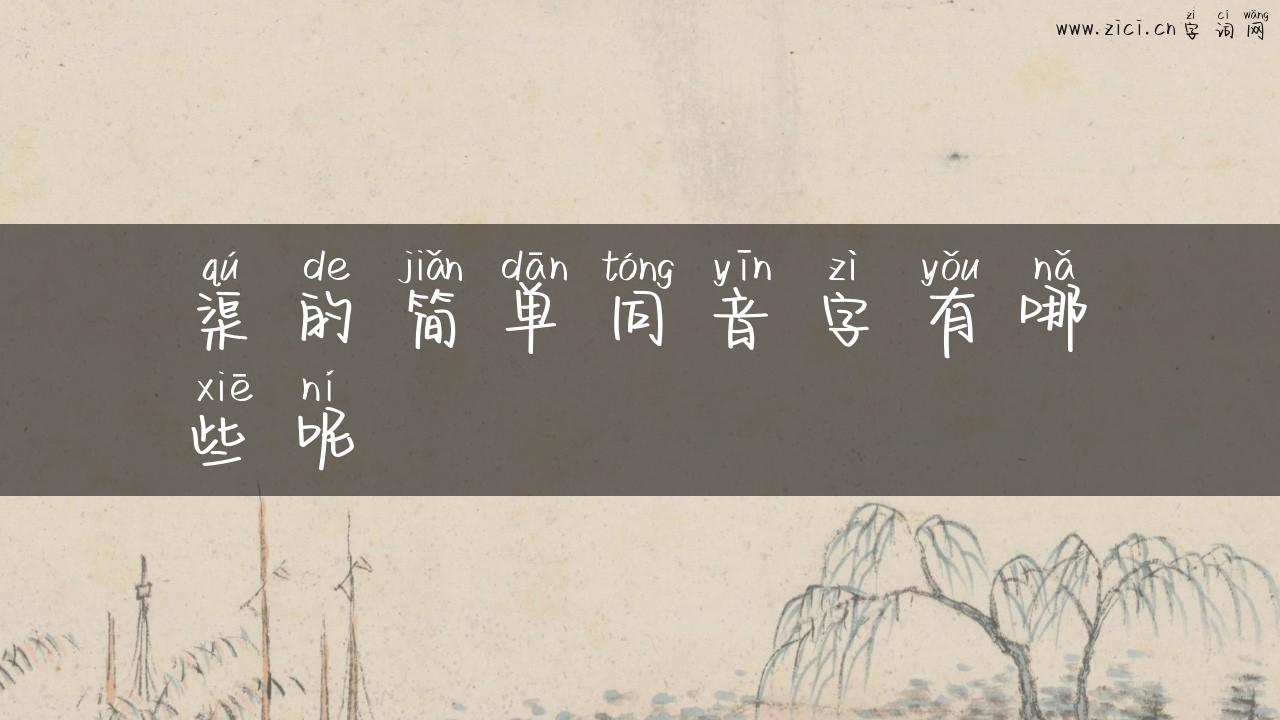 zì cí wǎng
www.zici.cn 字词网
qú de jiǎn dān tóng yīn zì yǒu nǎ
渠的简单同音字有哪
xiē ní
些呢